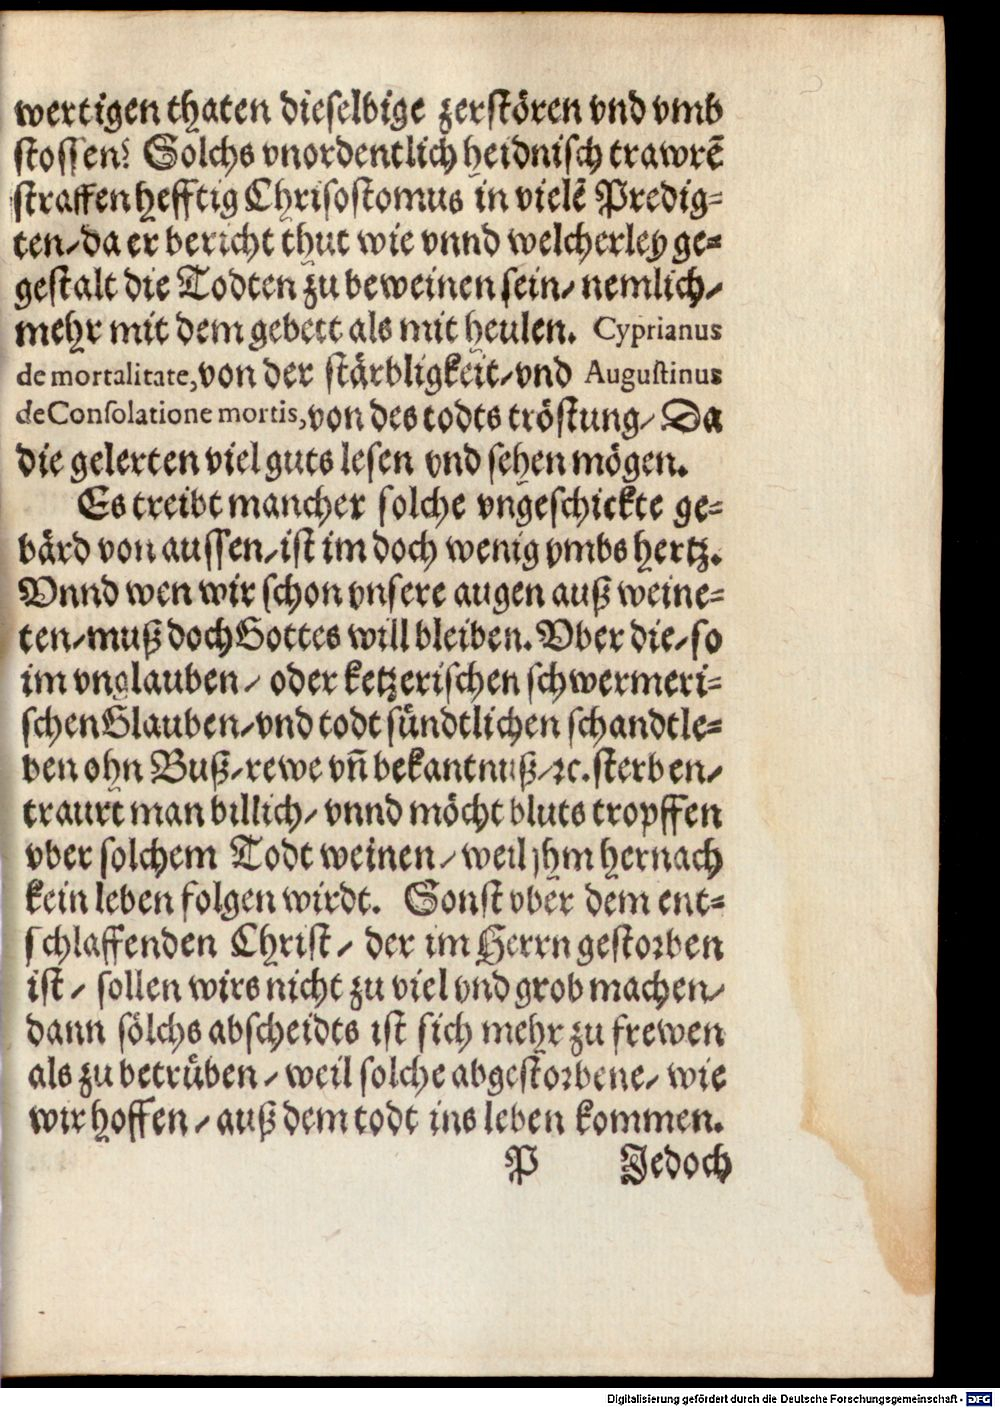 wertigen thaten dieselbige zerstören vnd vmb
stossen? Solchs vnordentlich heidnisch trawrẽ
straffen hefftig Chrisostomus in vielẽ Predig-
ten/ da er bericht thut wie vnnd welcherley ge-
gestalt die Todten zu beweinen sein/ nemlich/
mehr mit dem gebett als mit heulen. Cyprianus
de mortalitate, von der stärbligkeit/ vnd Augustinus
de Consolatione mortis, von des todts tröstung/ Da
die gelerten viel guts lesen vnd sehen mögen.
Es treibt mancher solche vngeschickte ge-
bärd von aussen/ ist im doch wenig vmbs hertz.
Vnnd wen wir schon vnsere augen auß weine-
ten/ muß doch Gottes will bleiben. Vber die/ so
im vnglauben/ oder ketzerischen schwermeri-
schen Glauben/ vnd todt sündtlichen schandtle-
ben ohn Buß/ rewe vñ bekantnuß/ ꝛc. sterben/
traurt man billich/ vnnd möcht bluts tropffen
vber solchem Todt weinen/ weil jhm hernach
kein leben folgen wirdt. Sonst vber dem ent-
schlaffenden Christ/ der im Herrn gestorben
ist/ sollen wirs nicht zu viel vnd grob machen/
dann sölchs abscheidts ist sich mehr zu frewen
als zu betrüben/ weil solche abgestorbene/ wie
wir hoffen/ auß dem todt ins leben kommen.
P Jedoch
Digitalisierung gefördert durch die Deutsche Forschungsgemeinschaft - DFG